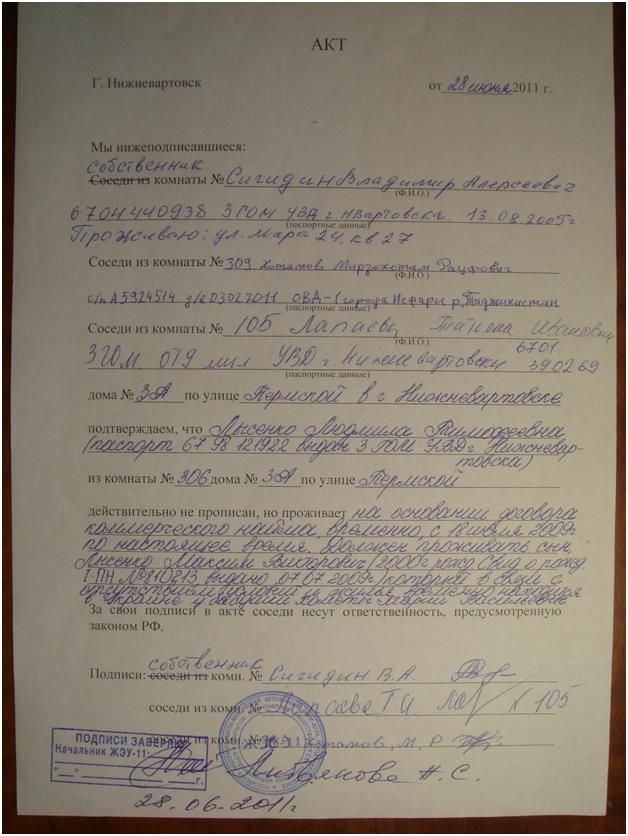 АКТ
Г. Нижневартовск от 28 июня 2011 г.
Мы нижеподписавшиеся:
собственник
Соседи из комнаты № Сигидин Владимир Алексеевич
(Ф.И.О.)
6704 440938 3 ГОМ УВД г. Нвартовска. 13.08.2005г.
(паспортные данные)
Проживаю: ул. Мира 24. кв 27
Соседи из комнаты № 309 Хотамов Мирзохотам Рауфович
(Ф.И.О.)
с/п А5924514 ОВД-1 города Исфары р. Таджикистан
(паспортные данные)
Соседи из комнаты № 105 Татьяна Ивановна
(Ф.И.О.)
6701
3 ГОМ. УВД г. Нижневартовска 390269
(паспортные данные)
дома № 3А по улице Пермской в г Нижневартовске
подтверждаем, что Лысенко Людмила Тимофеевна
(паспорт 67 98 121922 выдан 3 ГОМ УВД г Нижневар-
товска)
из комнаты № 306 дома № 3А по улице Пермской
действительно не прописан, но проживает на основании договора
коммерческого найма, временно, с 18 2009г
по настоящее время. Должен проживать сын,
Лысенко Максим Викторович (2000г рожд. Свид о рожд.
I-ПН № 810213 выдано 07.07.2009г) который в связи с
отсутствием условий временно находится
в Украине у бабушки Марии Васильевне
За свои подписи в акте соседи несут ответственность, предусмотренную
законом РФ.
собственник
Подписи: соседи из комн. № Сигидин В.А.
соседи из комн. № Т.И. к 105
соседи из комн. № Хотамов, М. Р
ПОДПИСИ ЗАВЕРЯЮ
Начальник ЖЭУ-11:
"___" ______ г.
ЖЭУ-11
Н.С.
28.06.2011г